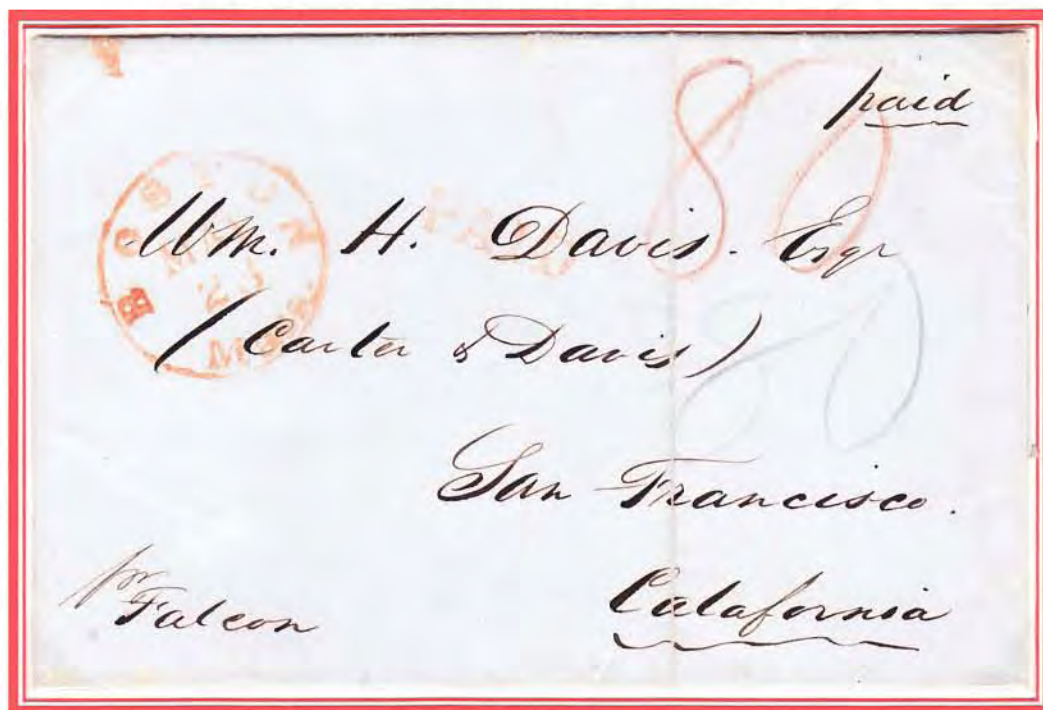 paid
80
BOSTON
MASS
Wm. H. Davis. Esqr
(Carter & Davis)
San Francisco.
Calafornia
pr
Falcon